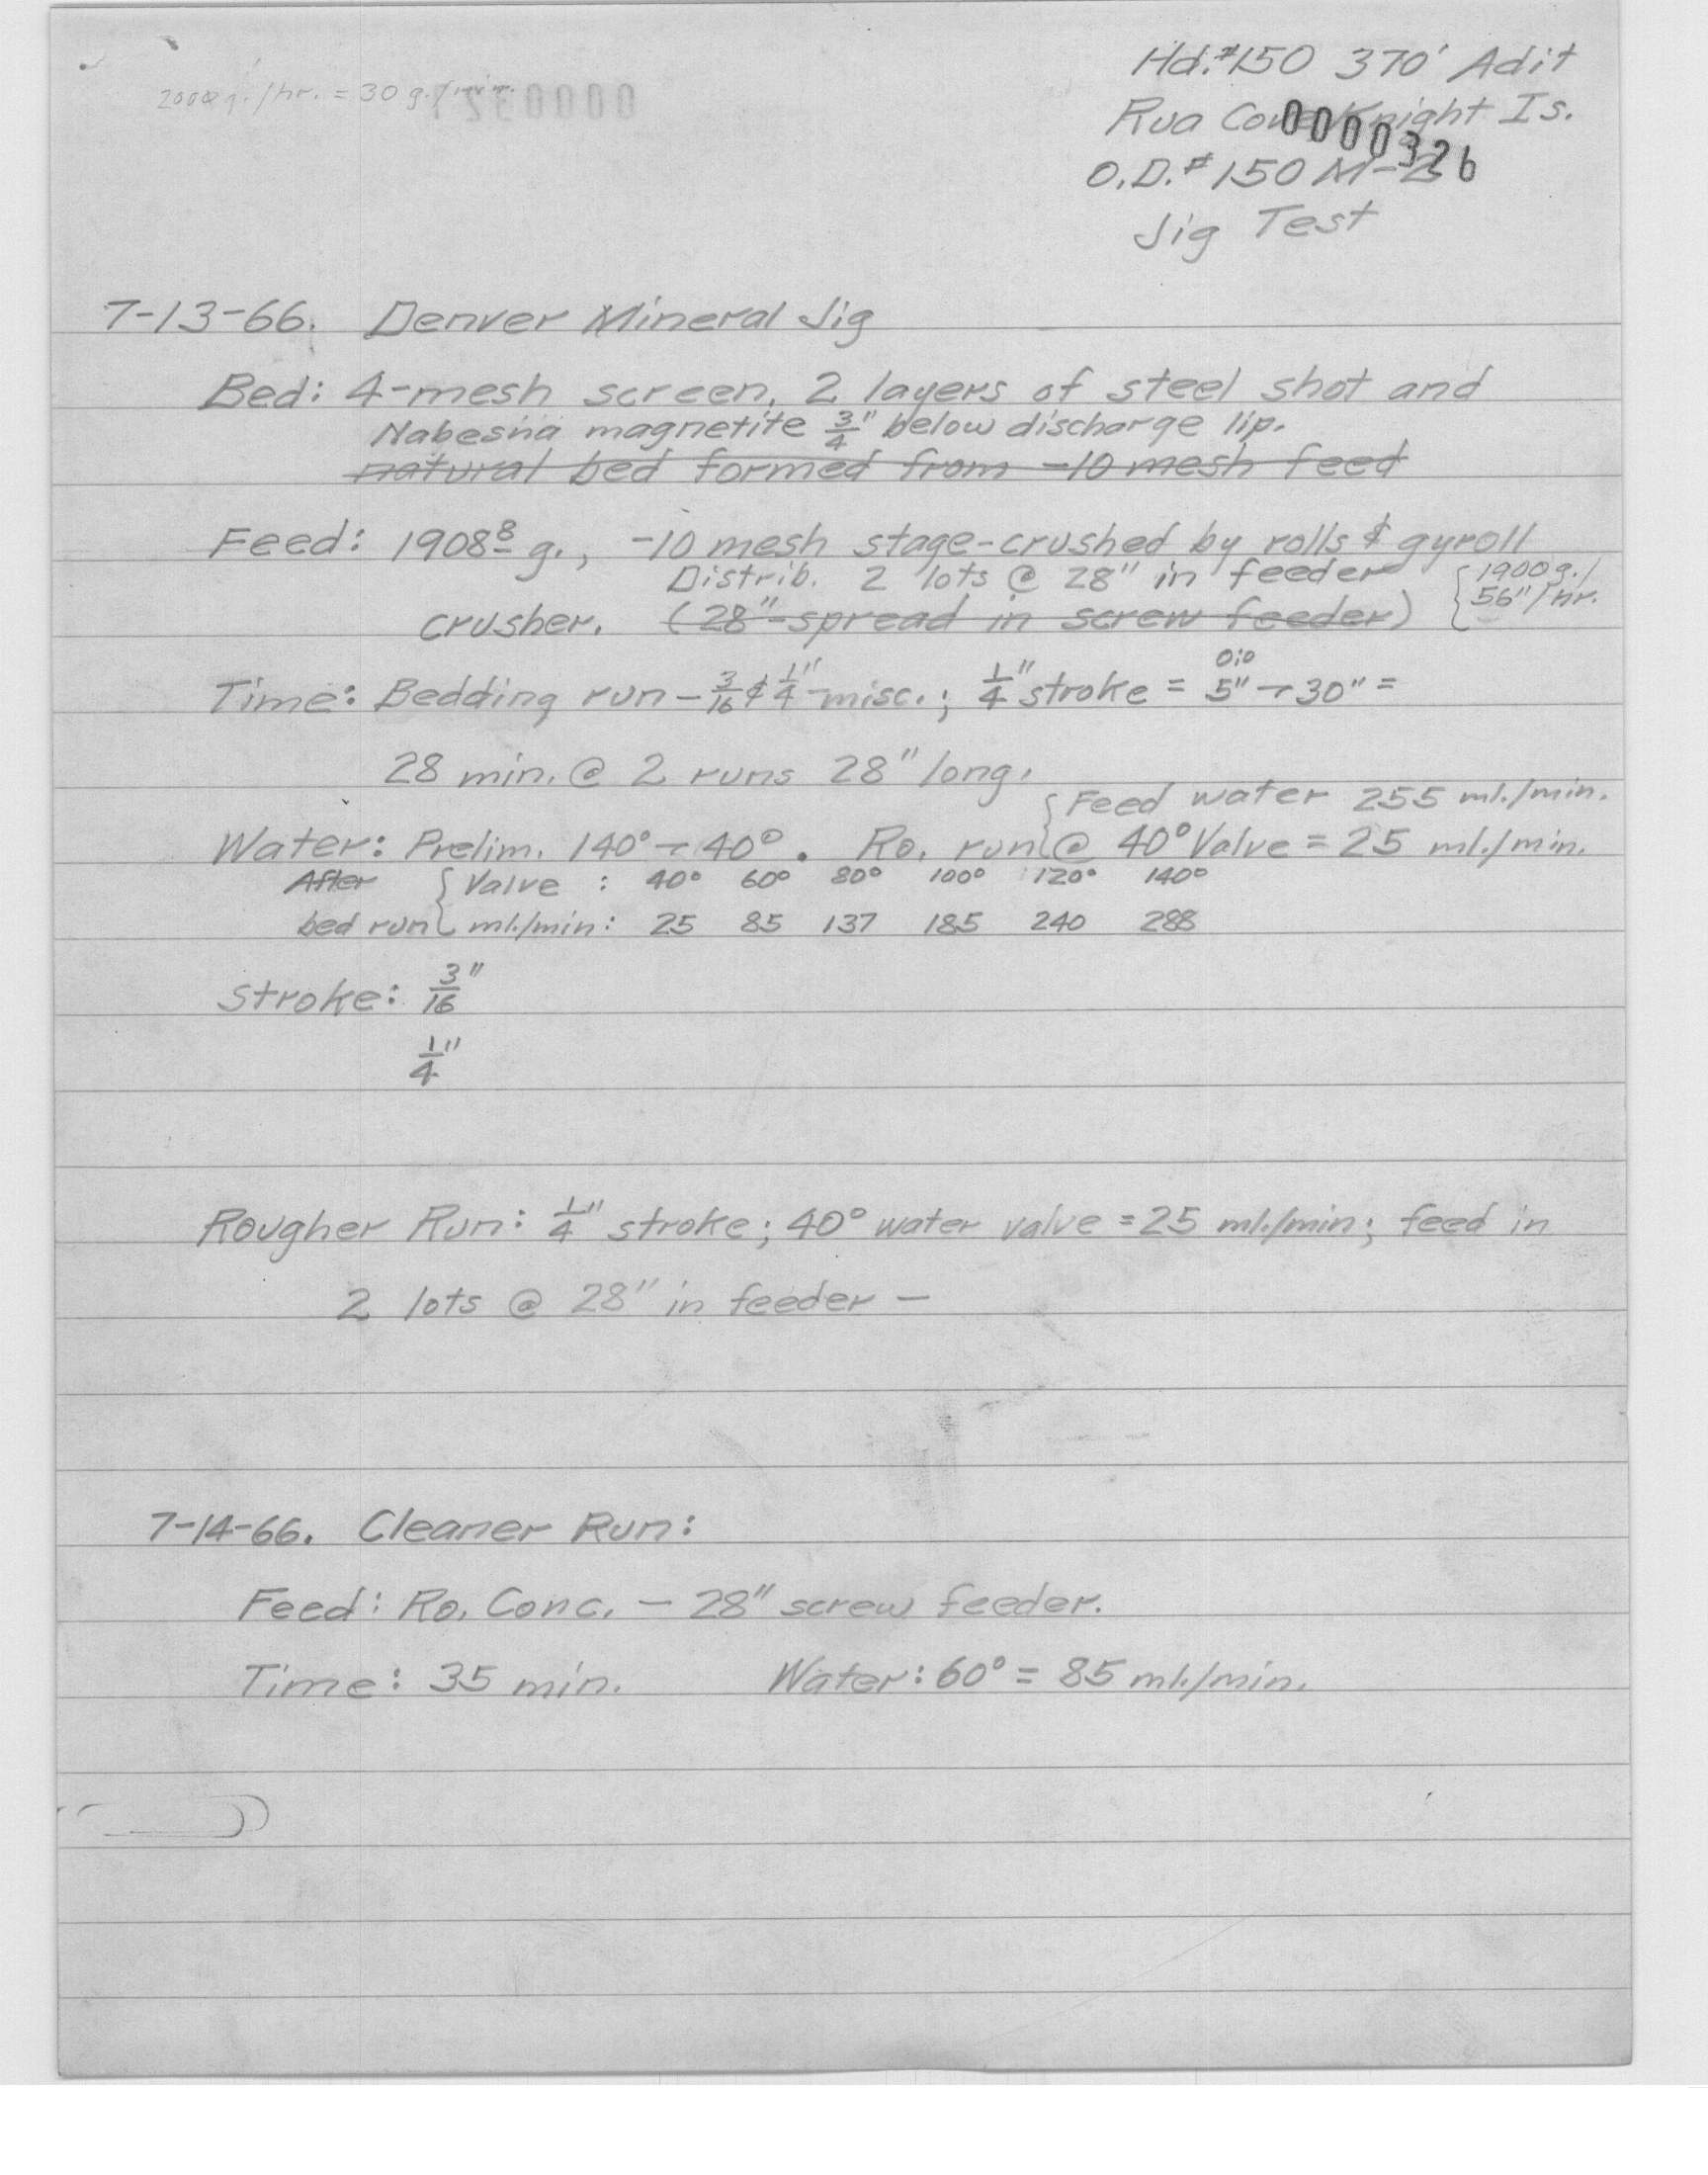 2000 g./hr. = 30 g./min.
Hd.#150 370' Adit
Rua Cove Knight Is.
0000326
O.D.#150 M-
Jig Test
7-13-66. Denver Mineral Jig
Bed: 4-mesh screen, 2 layers of steel shot and
Nabesna magnetite 3/4" below discharge lip.
natural bed formed from -10 mesh feed
Feed: 1908⁸ g., -10 mesh stage-crushed by rolls & gyroll
Distrib. 2 lots @ 28" in feeder {1900 g./
56"/hr.
crusher. (28"-spread in screw feeder)
Time: Bedding run - 3/16 & 1/4" misc.; 1/4" stroke = 5" → 30" =
28 min. @ 2 runs 28" long.
{Feed water 255 ml./min.
Water: Prelim. 140° → 40°. Ro. run @ 40° Valve = 25 ml./min.
After {Valve : 40° 60° 80° 100° 120° 140°
bed run ml./min: 25 85 137 185 240 288
Stroke: 3/16"
1/4"
Rougher Run: 1/4" stroke; 40° water valve = 25 ml./min; feed in
2 lots @ 28" in feeder —
7-14-66. Cleaner Run:
Feed: Ro. Conc. — 28" screw feeder.
Time: 35 min. Water: 60° = 85 ml./min.